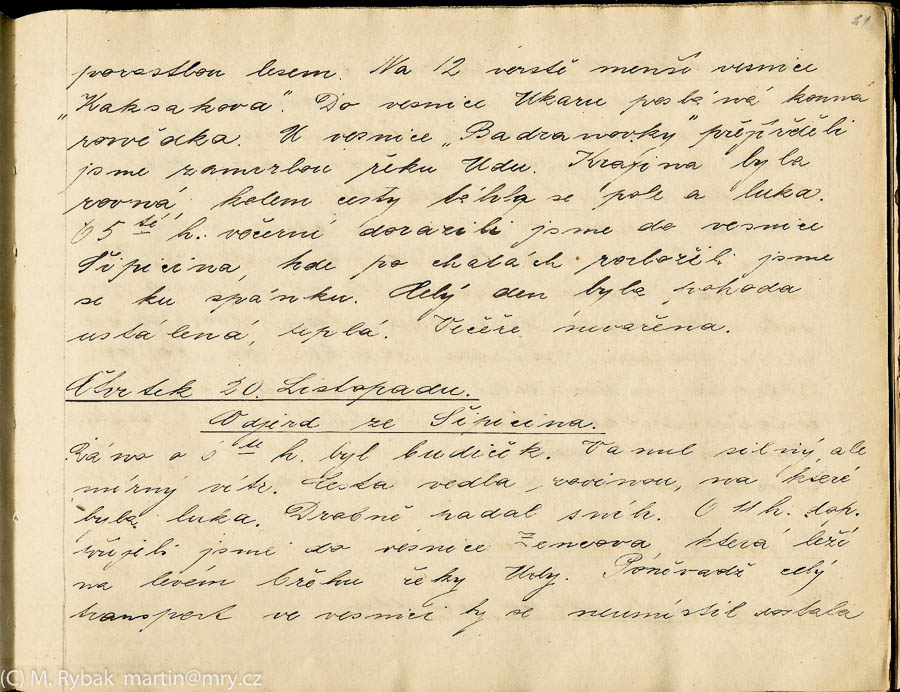 21
porostlou lesem. Na 12 verstě menší vesnice
"Kaksakova". Do vesnice Ukaru poslána konná
rozvědka. U vesnice "Badranovky" přejížděli
jsme zamrzlou řeku Udu. Krajina byla
rovná kolem cesty táhla se pole a luka.
O 5té h. večerní dorazili jsme do vesnice
Šipicina, kde po chatách rozložili jsme
se ku spánku. Celý den byla pohoda
ustálená, teplá. Večeře nevařena.
Čtvrtek 20. Listopadu.
Odjezd ze Šipicina.
Ráno o h. byl budíček. Vanul silný, ale
mírný vítr. Cesta vedla rovinou, na které
byla luka. Drobně padal sníh. O 11 h. dop.
vjeli jsme do vesnice Zencova která leží
na levém břehu řeky Udy. Poněvadž celý
transport ve vesnici by se neumístil zůstala
(C) M. Rybak martin@mry.cz